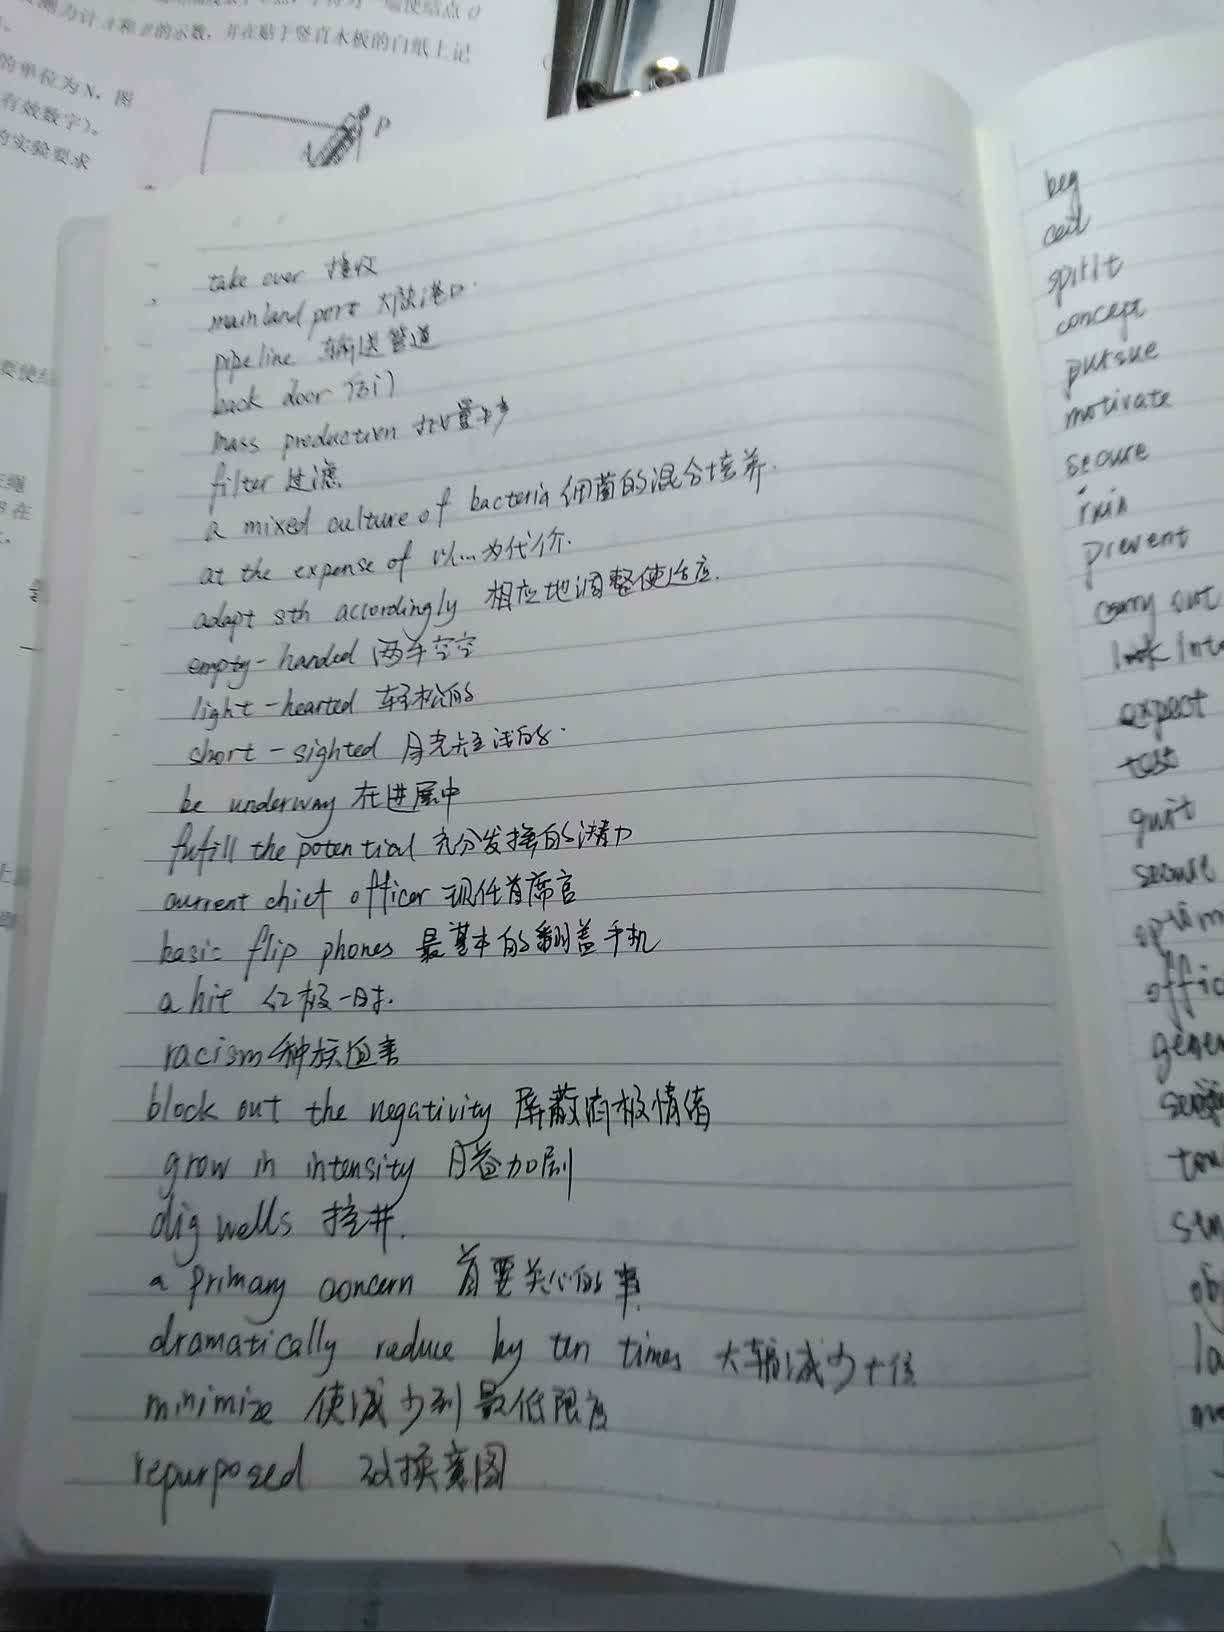 测力计A和B的示数，并在贴于竖直木板的白纸上记
的单位为N，图
有效数字）。
的实验要求
P
take over 接收
mainland port 大陆港口.
pipeline 输送管道
back door 后门
mass production 批量生产
filter 过滤
a mixed culture of bacteria 细菌的混合培养.
at the expense of 以...为代价.
adapt sth accordingly 相应地调整使适应.
empty-handed 两手空空
light-hearted 轻松的
short-sighted 目光短浅的.
be underway 在进展中
fufill the potential 充分发挥的潜力
current chief officer 现任首席官
basic flip phones 最基本的翻盖手机
a hit 红极一时.
racism 种族迫害
block out the negativity 屏蔽消极情绪
grow in intensity 日益加剧
dig wells 挖井.
a primary concern 首要关心的事
dramatically reduce by ten times 大幅减少十倍
minimize 使减少到最低限度
repurposed 改换意图
beg
spirit
concept
pursue
motivate
secure
ruin
prevent
carry out
look into
expect
test
quit
secure